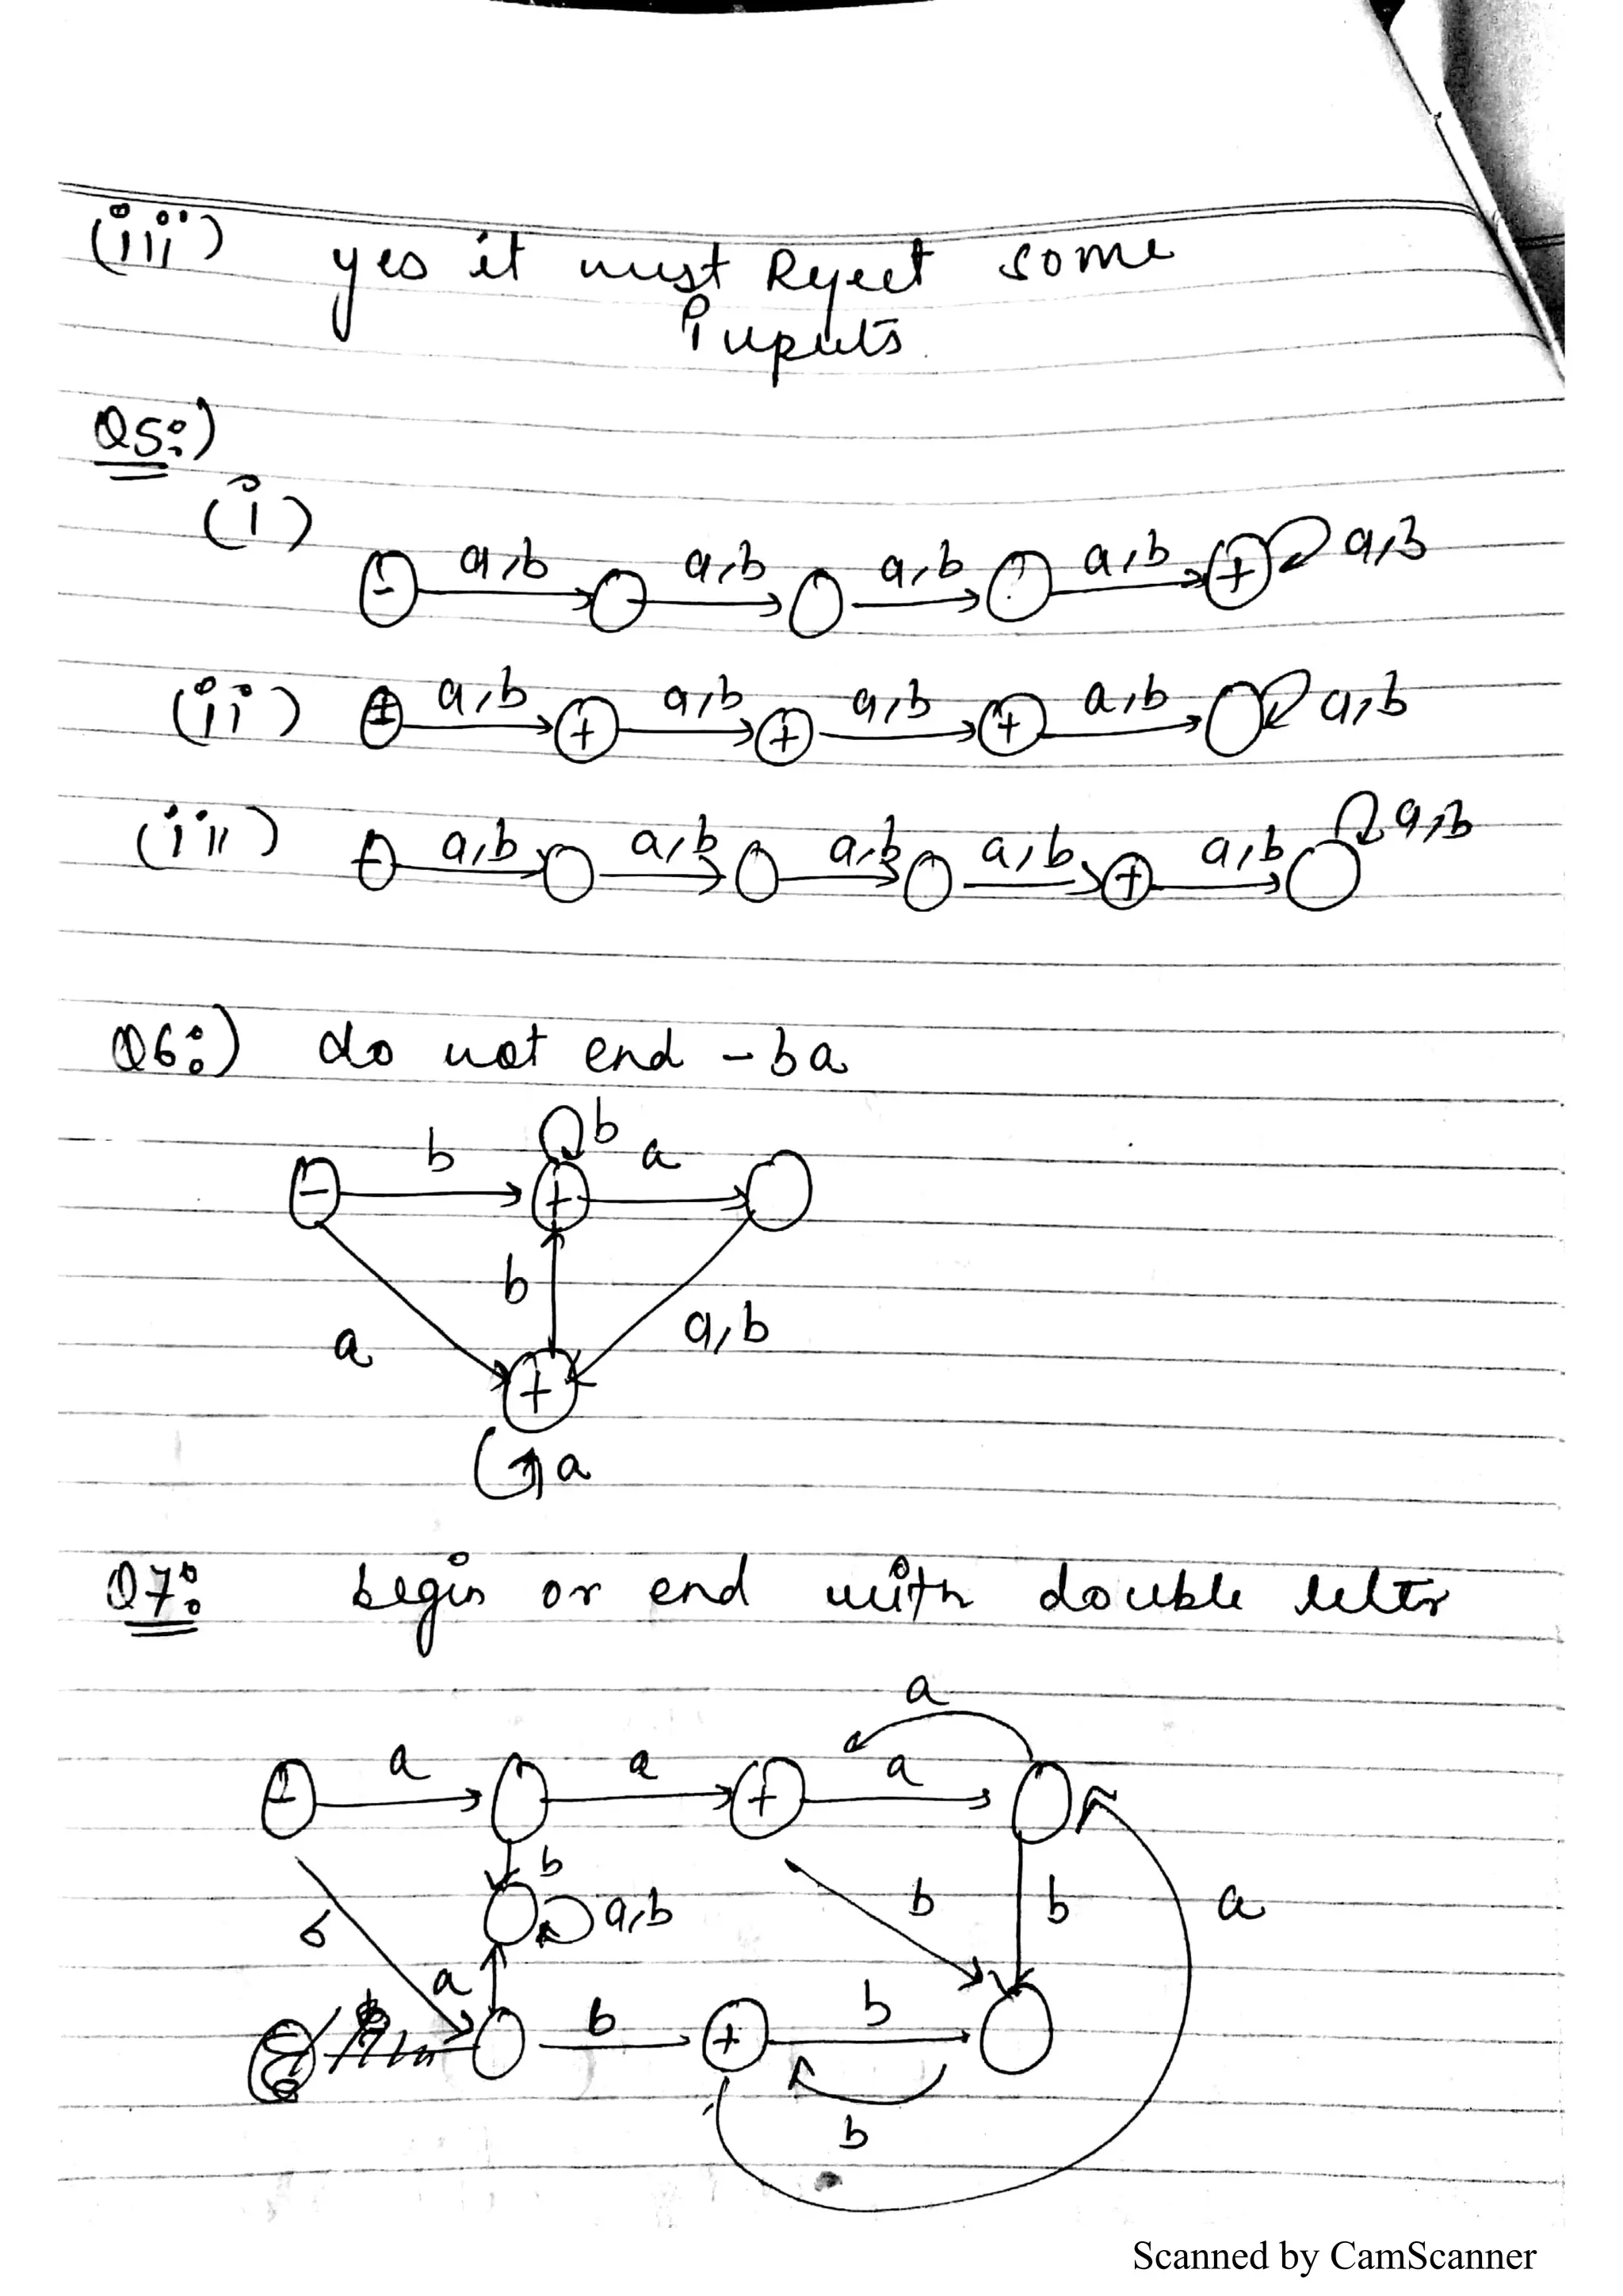 (iii) yes it must Reject some
inputs.
Q5:)
(i)
- a,b a,b a,b a,b + a,b
(ii) ± a,b + a,b + a,b + a,b a,b
(iii) - a,b a,b a,b a,b + a,b a,b
Q6:) do not end -ba
b
- b + a
b
a a,b
+
a
Q7: begin or end with double letter
a
- a a + a
b
b a,b b b a
a
b + b
b
Scanned by CamScanner